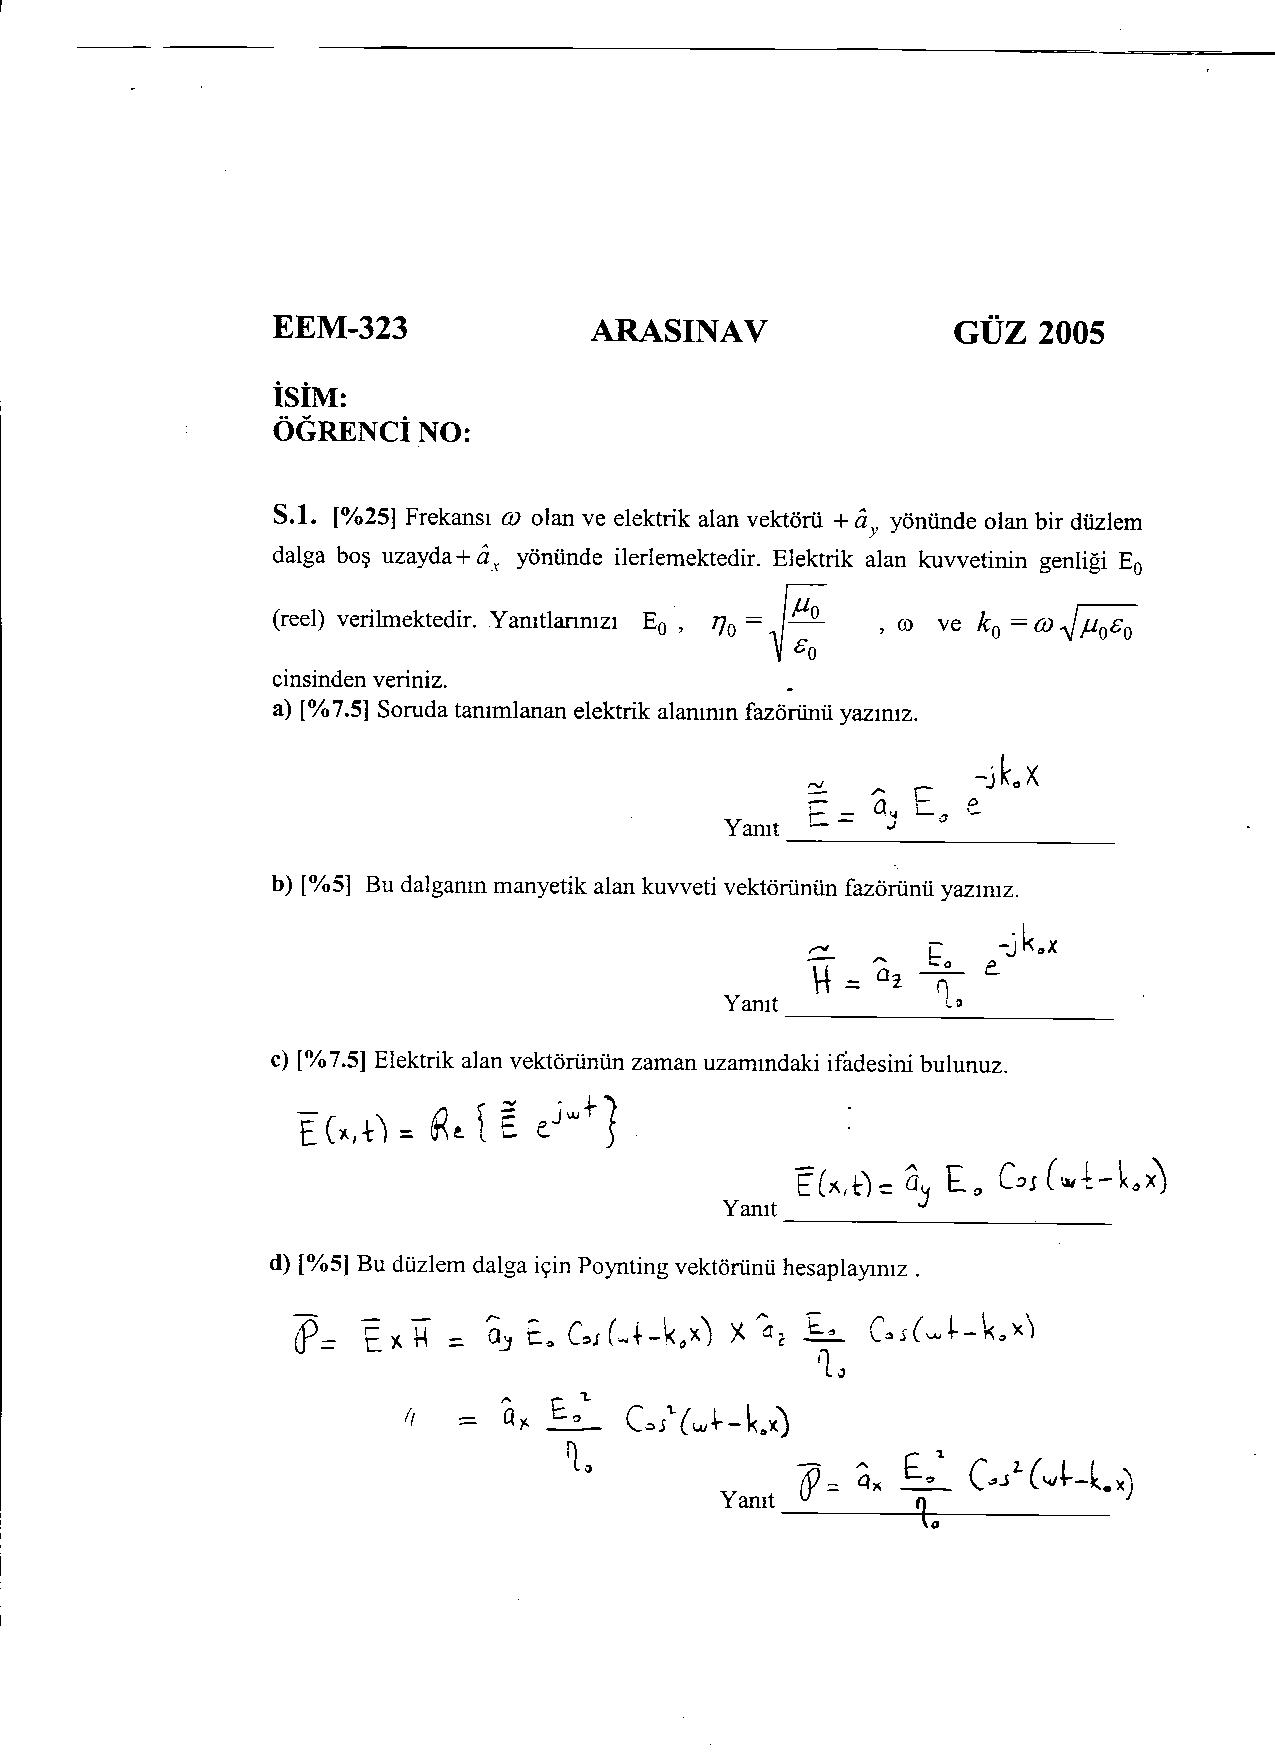 EEM-323 ARASINAV GÜZ 2005
İSİM:
ÖĞRENCİ NO:
S.1. [%25] Frekansı ω olan ve elektrik alan vektörü + â_y yönünde olan bir düzlem
dalga boş uzayda + â_x yönünde ilerlemektedir. Elektrik alan kuvvetinin genliği E₀
(reel) verilmektedir. Yanıtlarınızı E₀ , η₀ = √(μ₀/ε₀) , ω ve k₀ = ω√(μ₀ε₀)
cinsinden veriniz.
a) [%7.5] Soruda tanımlanan elektrik alanının fazörünü yazınız.
Yanıt Ẽ = â_y E₀ e^(-jk₀x)
b) [%5] Bu dalganın manyetik alan kuvveti vektörünün fazörünü yazınız.
Yanıt H̃ = â_z E₀/η₀ e^(-jk₀x)
c) [%7.5] Elektrik alan vektörünün zaman uzamındaki ifadesini bulunuz.
E̅(x,t) = Re{Ẽ e^(jωt)}
Yanıt E̅(x,t) = â_y E₀ Cos(ωt-k₀x)
d) [%5] Bu düzlem dalga için Poynting vektörünü hesaplayınız .
P̅ = E̅ x H̅ = â_y E₀ Cos(ωt-k₀x) x â_z E₀/η₀ Cos(ωt-k₀x)
" = â_x E₀²/η₀ Cos²(ωt-k₀x)
Yanıt P̅ = â_x E₀²/η₀ Cos²(ωt-k₀x)